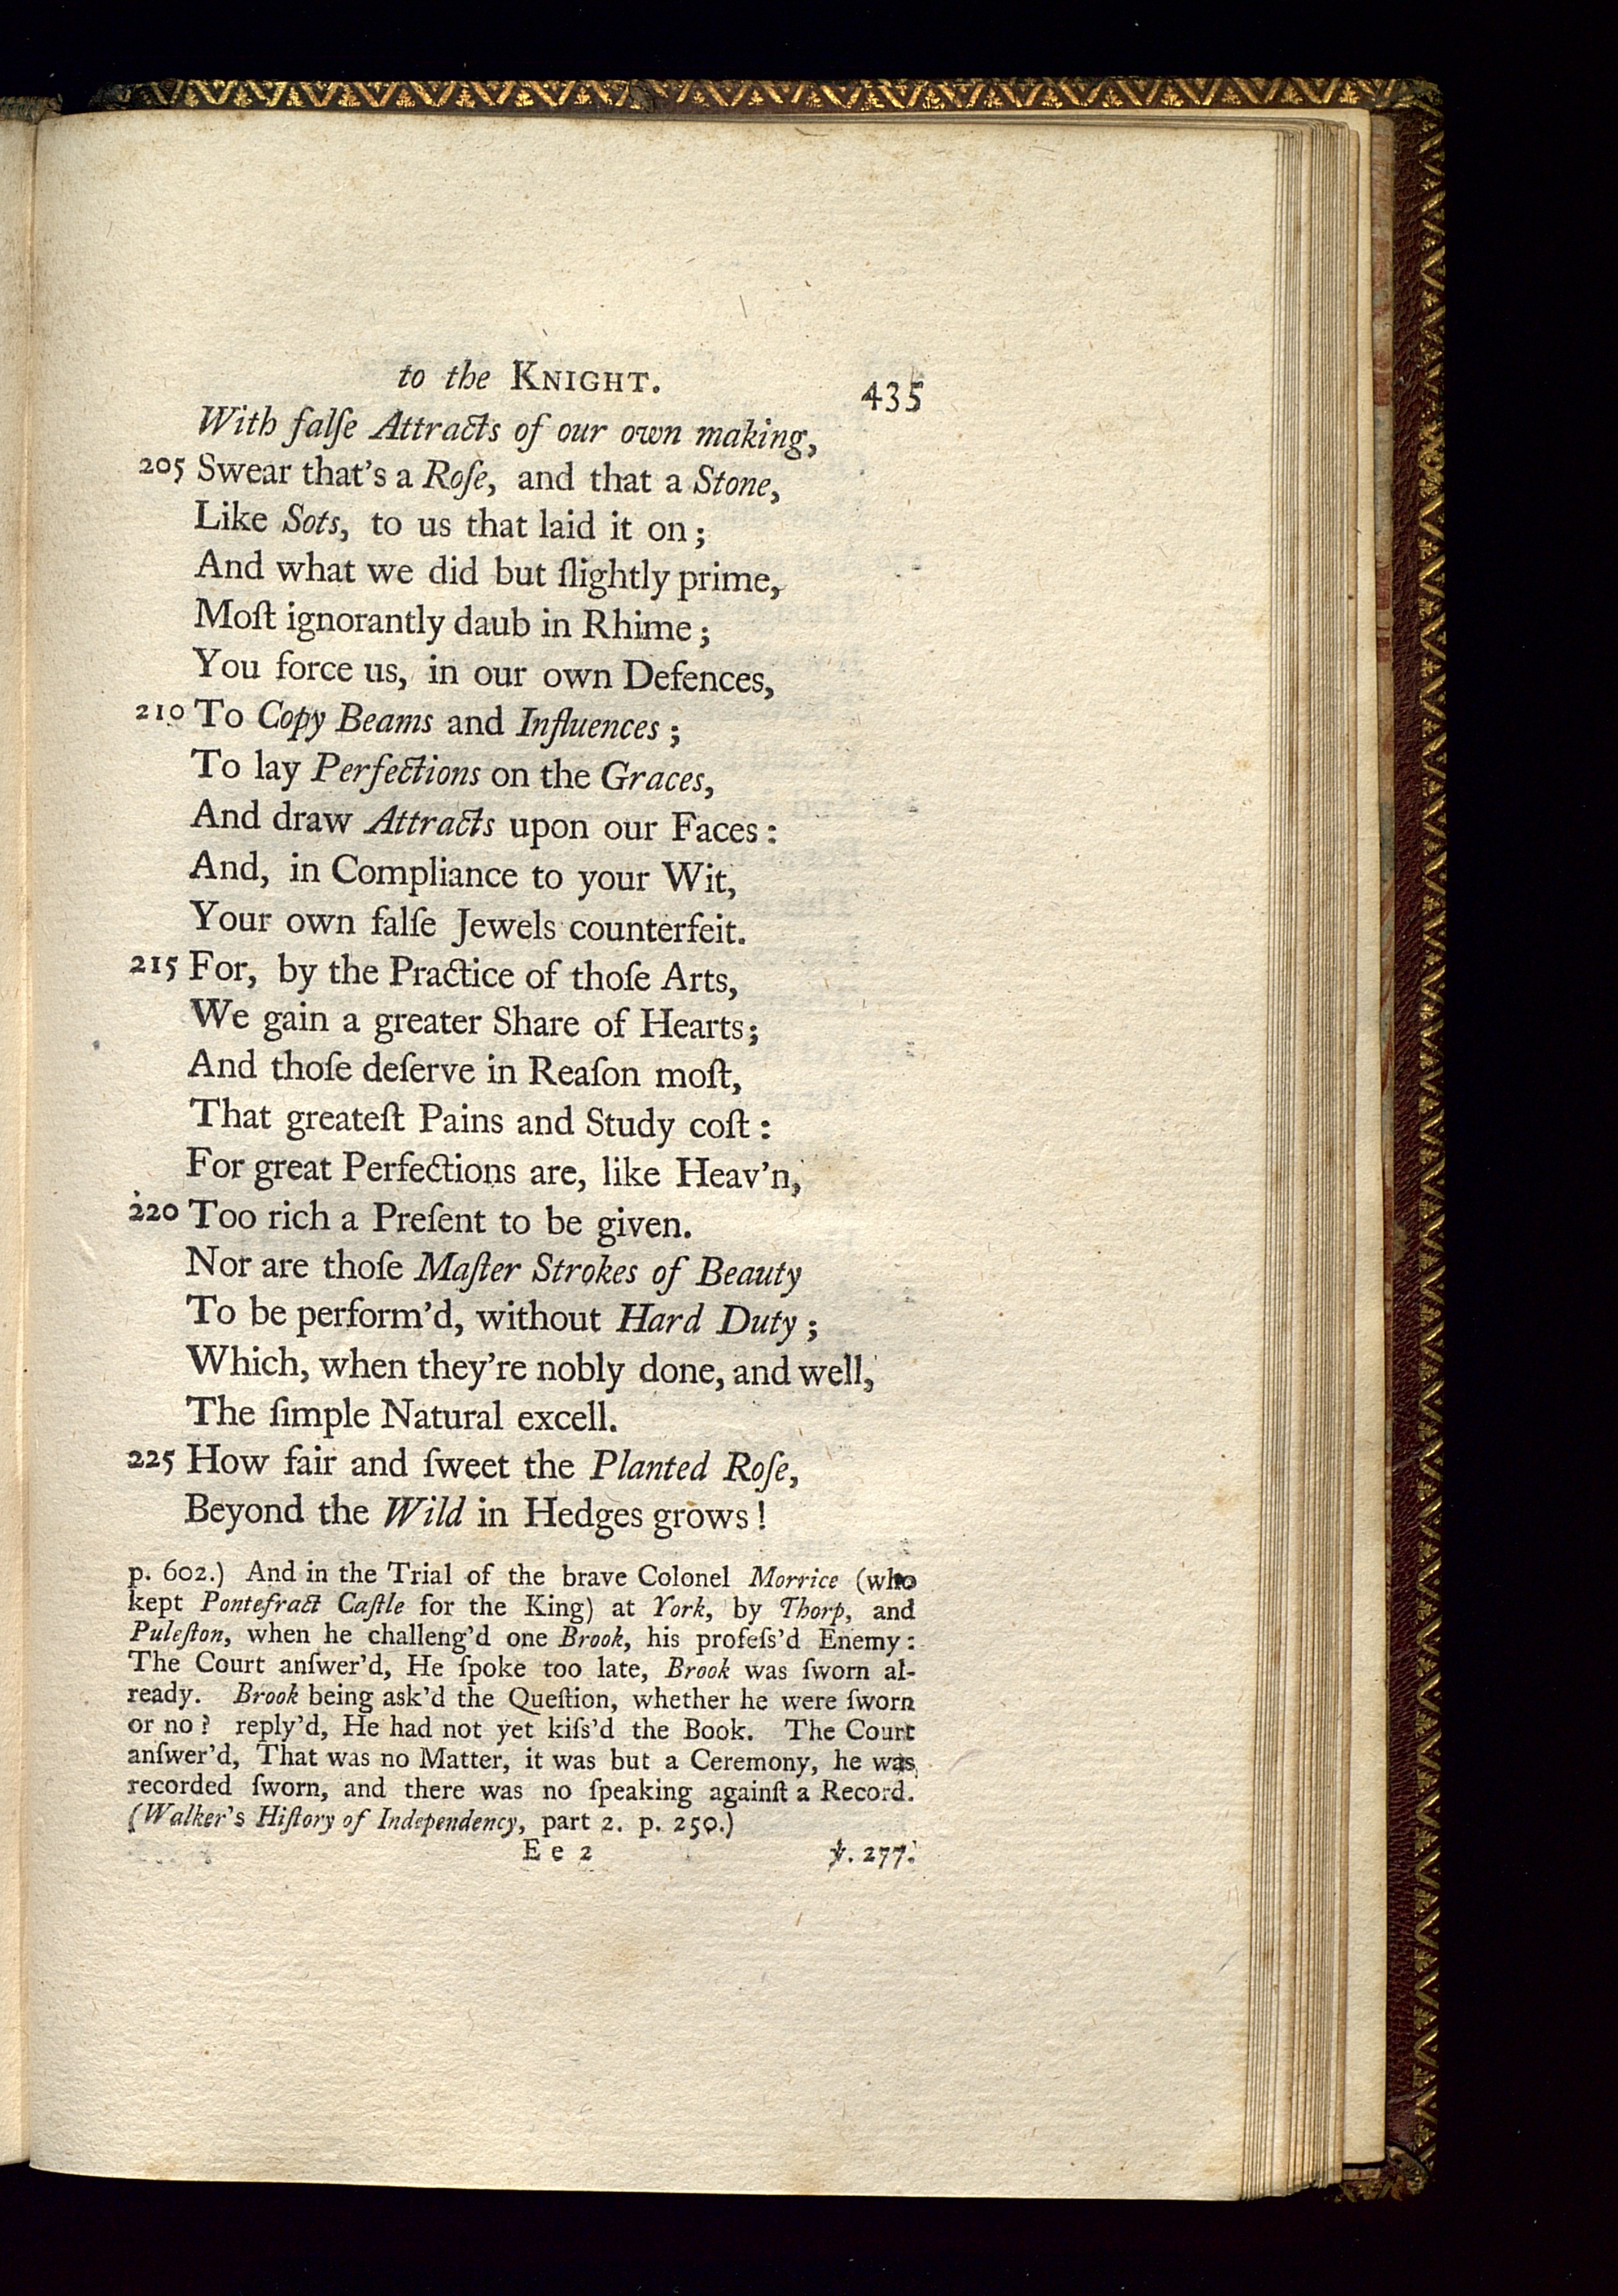 to the KNIGHT.
435
With falſe Attracts of our own making,
205 Swear that's a Roſe, and that a Stone,
Like Sots, to us that laid it on;
And what we did but ſlightly prime,
Moſt ignorantly daub in Rhime;
You force us, in our own Defences,
210 To Copy Beams and Influences;
To lay Perfections on the Graces,
And draw Attracts upon our Faces:
And, in Compliance to your Wit,
Your own falſe Jewels counterfeit.
215 For, by the Practice of thoſe Arts,
We gain a greater Share of Hearts;
And thoſe deſerve in Reaſon moſt,
That greateſt Pains and Study coſt:
For great Perfections are, like Heav'n,
220 Too rich a Preſent to be given.
Nor are thoſe Maſter Strokes of Beauty
To be perform'd, without Hard Duty;
Which, when they're nobly done, and well,
The ſimple Natural excell.
225 How fair and ſweet the Planted Roſe,
Beyond the Wild in Hedges grows!
p. 602.) And in the Trial of the brave Colonel Morrice (who
kept Pontefract Caſtle for the King) at York, by Thorp, and
Puleſton, when he challeng'd one Brook, his profeſs'd Enemy:
The Court anſwer'd, He ſpoke too late, Brook was ſworn al-
ready. Brook being ask'd the Queſtion, whether he were ſworn
or no? reply'd, He had not yet kiſs'd the Book. The Court
anſwer'd, That was no Matter, it was but a Ceremony, he was
recorded ſworn, and there was no ſpeaking againſt a Record.
(Walker's Hiſtory of Independency, part 2. p. 250.)
E e 2
℣. 277.